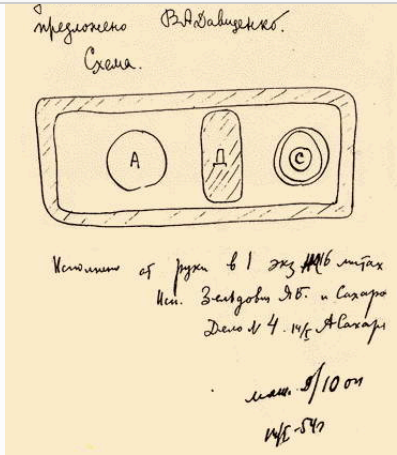 предложено В.А.Давиденко.
Схема.
А Д С
Исполнено от руки в 1 экз на 6 листах
Исп. Зельдович Я.Б. и Сахаро
Дело N 4. 14/I АСахар
маш. 9/10 оп
14/I-54г